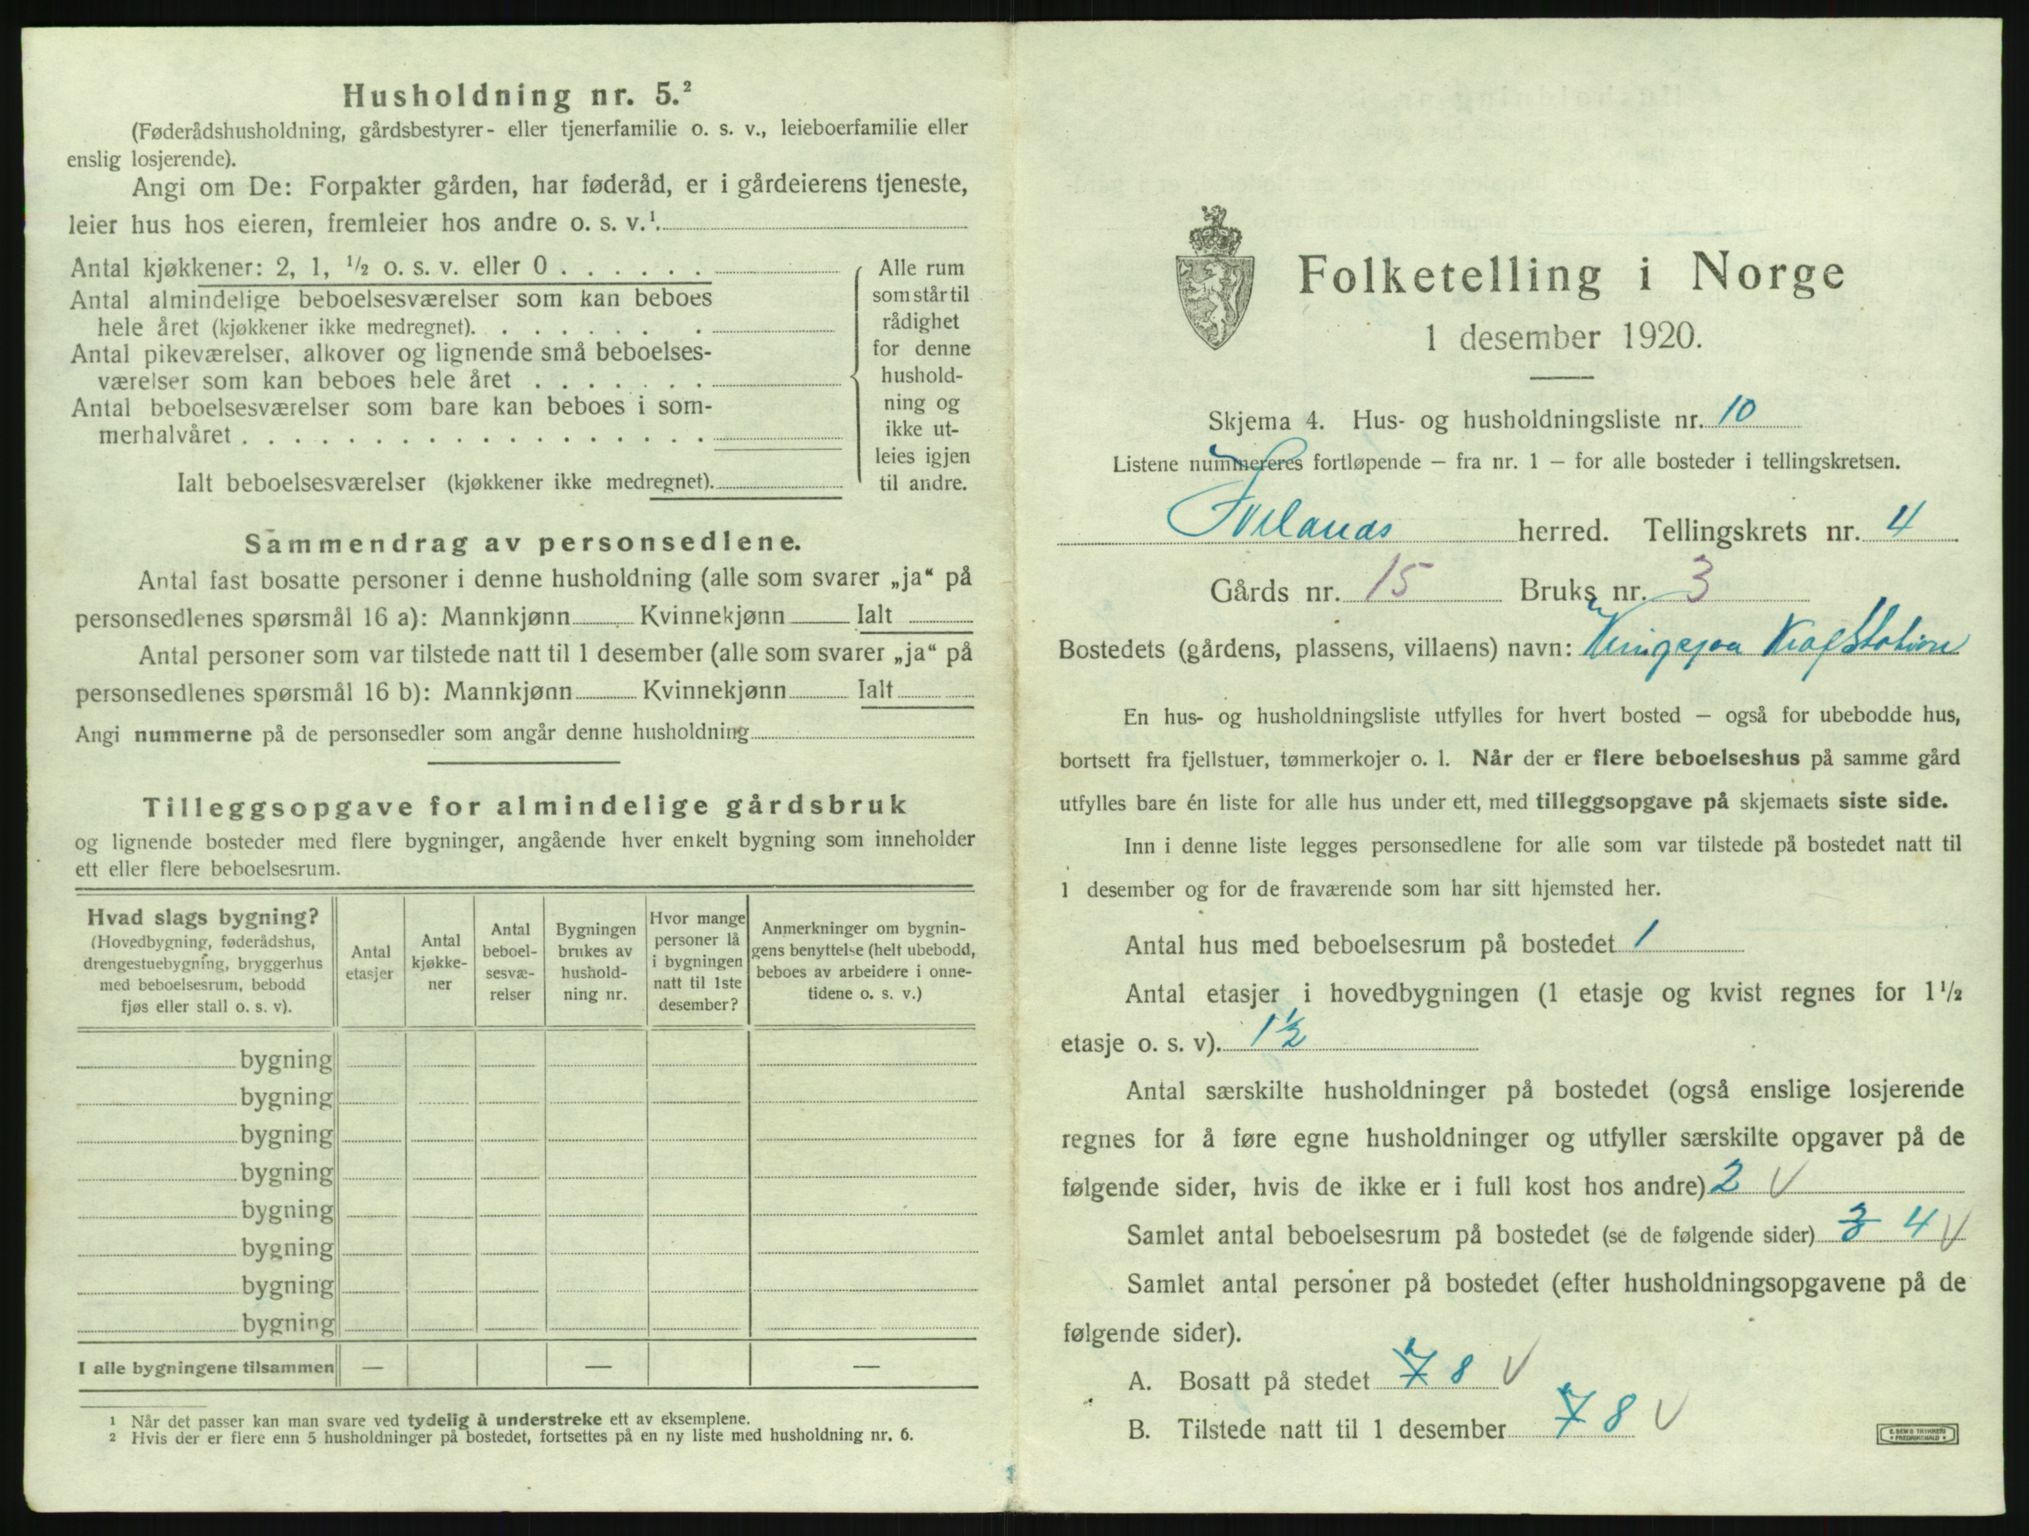 Husholdning nr. 5.²
(Føderådshusholdning, gårdsbestyrer- eller tjenerfamilie o. s. v., leieboerfamilie eller
enslig losjerende).
Angi om De: Forpakter gården, har føderåd, er i gårdeierens tjeneste,
leier hus hos eieren, fremleier hos andre o. s. v.¹.
Antal kjøkkener: 2, 1, ½ o. s. v. eller 0 . . . . . .
Antal almindelige beboelsesværelser som kan beboes
hele året (kjøkkener ikke medregnet). . . . . . . .
Antal pikeværelser, alkover og lignende små beboelses-
værelser som kan beboes hele året . . . . . . .
Antal beboelsesværelser som bare kan beboes i som-
merhalvåret . . . . . . . . . . . . . . . . . .
Alle rum
som står til
rådighet
for denne
hushold-
ning og
ikke ut-
leies igjen
til andre.
Ialt beboelsesværelser (kjøkkener ikke medregnet).
Sammendrag av personsedlene.
Antal fast bosatte personer i denne husholdning (alle som svarer „ja“ på
personsedlenes spørsmål 16 a): Mannkjønn Kvinnekjønn Ialt
Antal personer som var tilstede natt til 1 desember (alle som svarer „ja“ på
personsedlenes spørsmål 16 b): Mannkjønn Kvinnekjønn Ialt
Angi nummerne på de personsedler som angår denne husholdning
Tilleggsopgave for almindelige gårdsbruk
og lignende bosteder med flere bygninger, angående hver enkelt bygning som inneholder
ett eller flere beboelsesrum.
Hvad slags bygning?
(Hovedbygning, føderådshus,
drengestuebygning, bryggerhus
med beboelsesrum, bebodd
fjøs eller stall o. s. v).
Antal
etasjer
Antal
kjøkke-
ner
Antal
beboel-
sesvæ-
relser
Bygningen
brukes av
hushold-
ning nr.
Hvor mange
personer lå
i bygningen
natt til 1ste
desember?
Anmerkninger om bygnin-
gens benyttelse (helt ubebodd,
beboes av arbeidere i onne-
tidene o. s. v.)
bygning
bygning
bygning
bygning
bygning
bygning
bygning
bygning
I alle bygningene tilsammen — — —
¹ Når det passer kan man svare ved tydelig å understreke ett av eksemplene.
² Hvis der er flere enn 5 husholdninger på bostedet, fortsettes på en ny liste med husholdning nr. 6.
Folketelling i Norge
1 desember 1920.
Skjema 4. Hus- og husholdningsliste nr. 10
Listene nummereres fortløpende – fra nr. 1 – for alle bosteder i tellingskretsen.
herred. Tellingskrets nr. 4
Gårds nr. 15 Bruks nr. 3
Bostedets (gårdens, plassens, villaens) navn:
En hus- og husholdningsliste utfylles for hvert bosted – også for ubebodde hus,
bortsett fra fjellstuer, tømmerkojer o. l. Når der er flere beboelseshus på samme gård
utfylles bare én liste for alle hus under ett, med tilleggsopgave på skjemaets siste side.
Inn i denne liste legges personsedlene for alle som var tilstede på bostedet natt til
1 desember og for de fraværende som har sitt hjemsted her.
Antal hus med beboelsesrum på bostedet 1
Antal etasjer i hovedbygningen (1 etasje og kvist regnes for 1½
etasje o. s. v). 1½
Antal særskilte husholdninger på bostedet (også enslige losjerende
regnes for å føre egne husholdninger og utfyller særskilte opgaver på de
følgende sider, hvis de ikke er i full kost hos andre) 2 V
Samlet antal beboelsesrum på bostedet (se de følgende sider) 3 4 V
Samlet antal personer på bostedet (efter husholdningsopgavene på de
følgende sider).
A. Bosatt på stedet 7 8 V
B. Tilstede natt til 1 desember 7 8 V